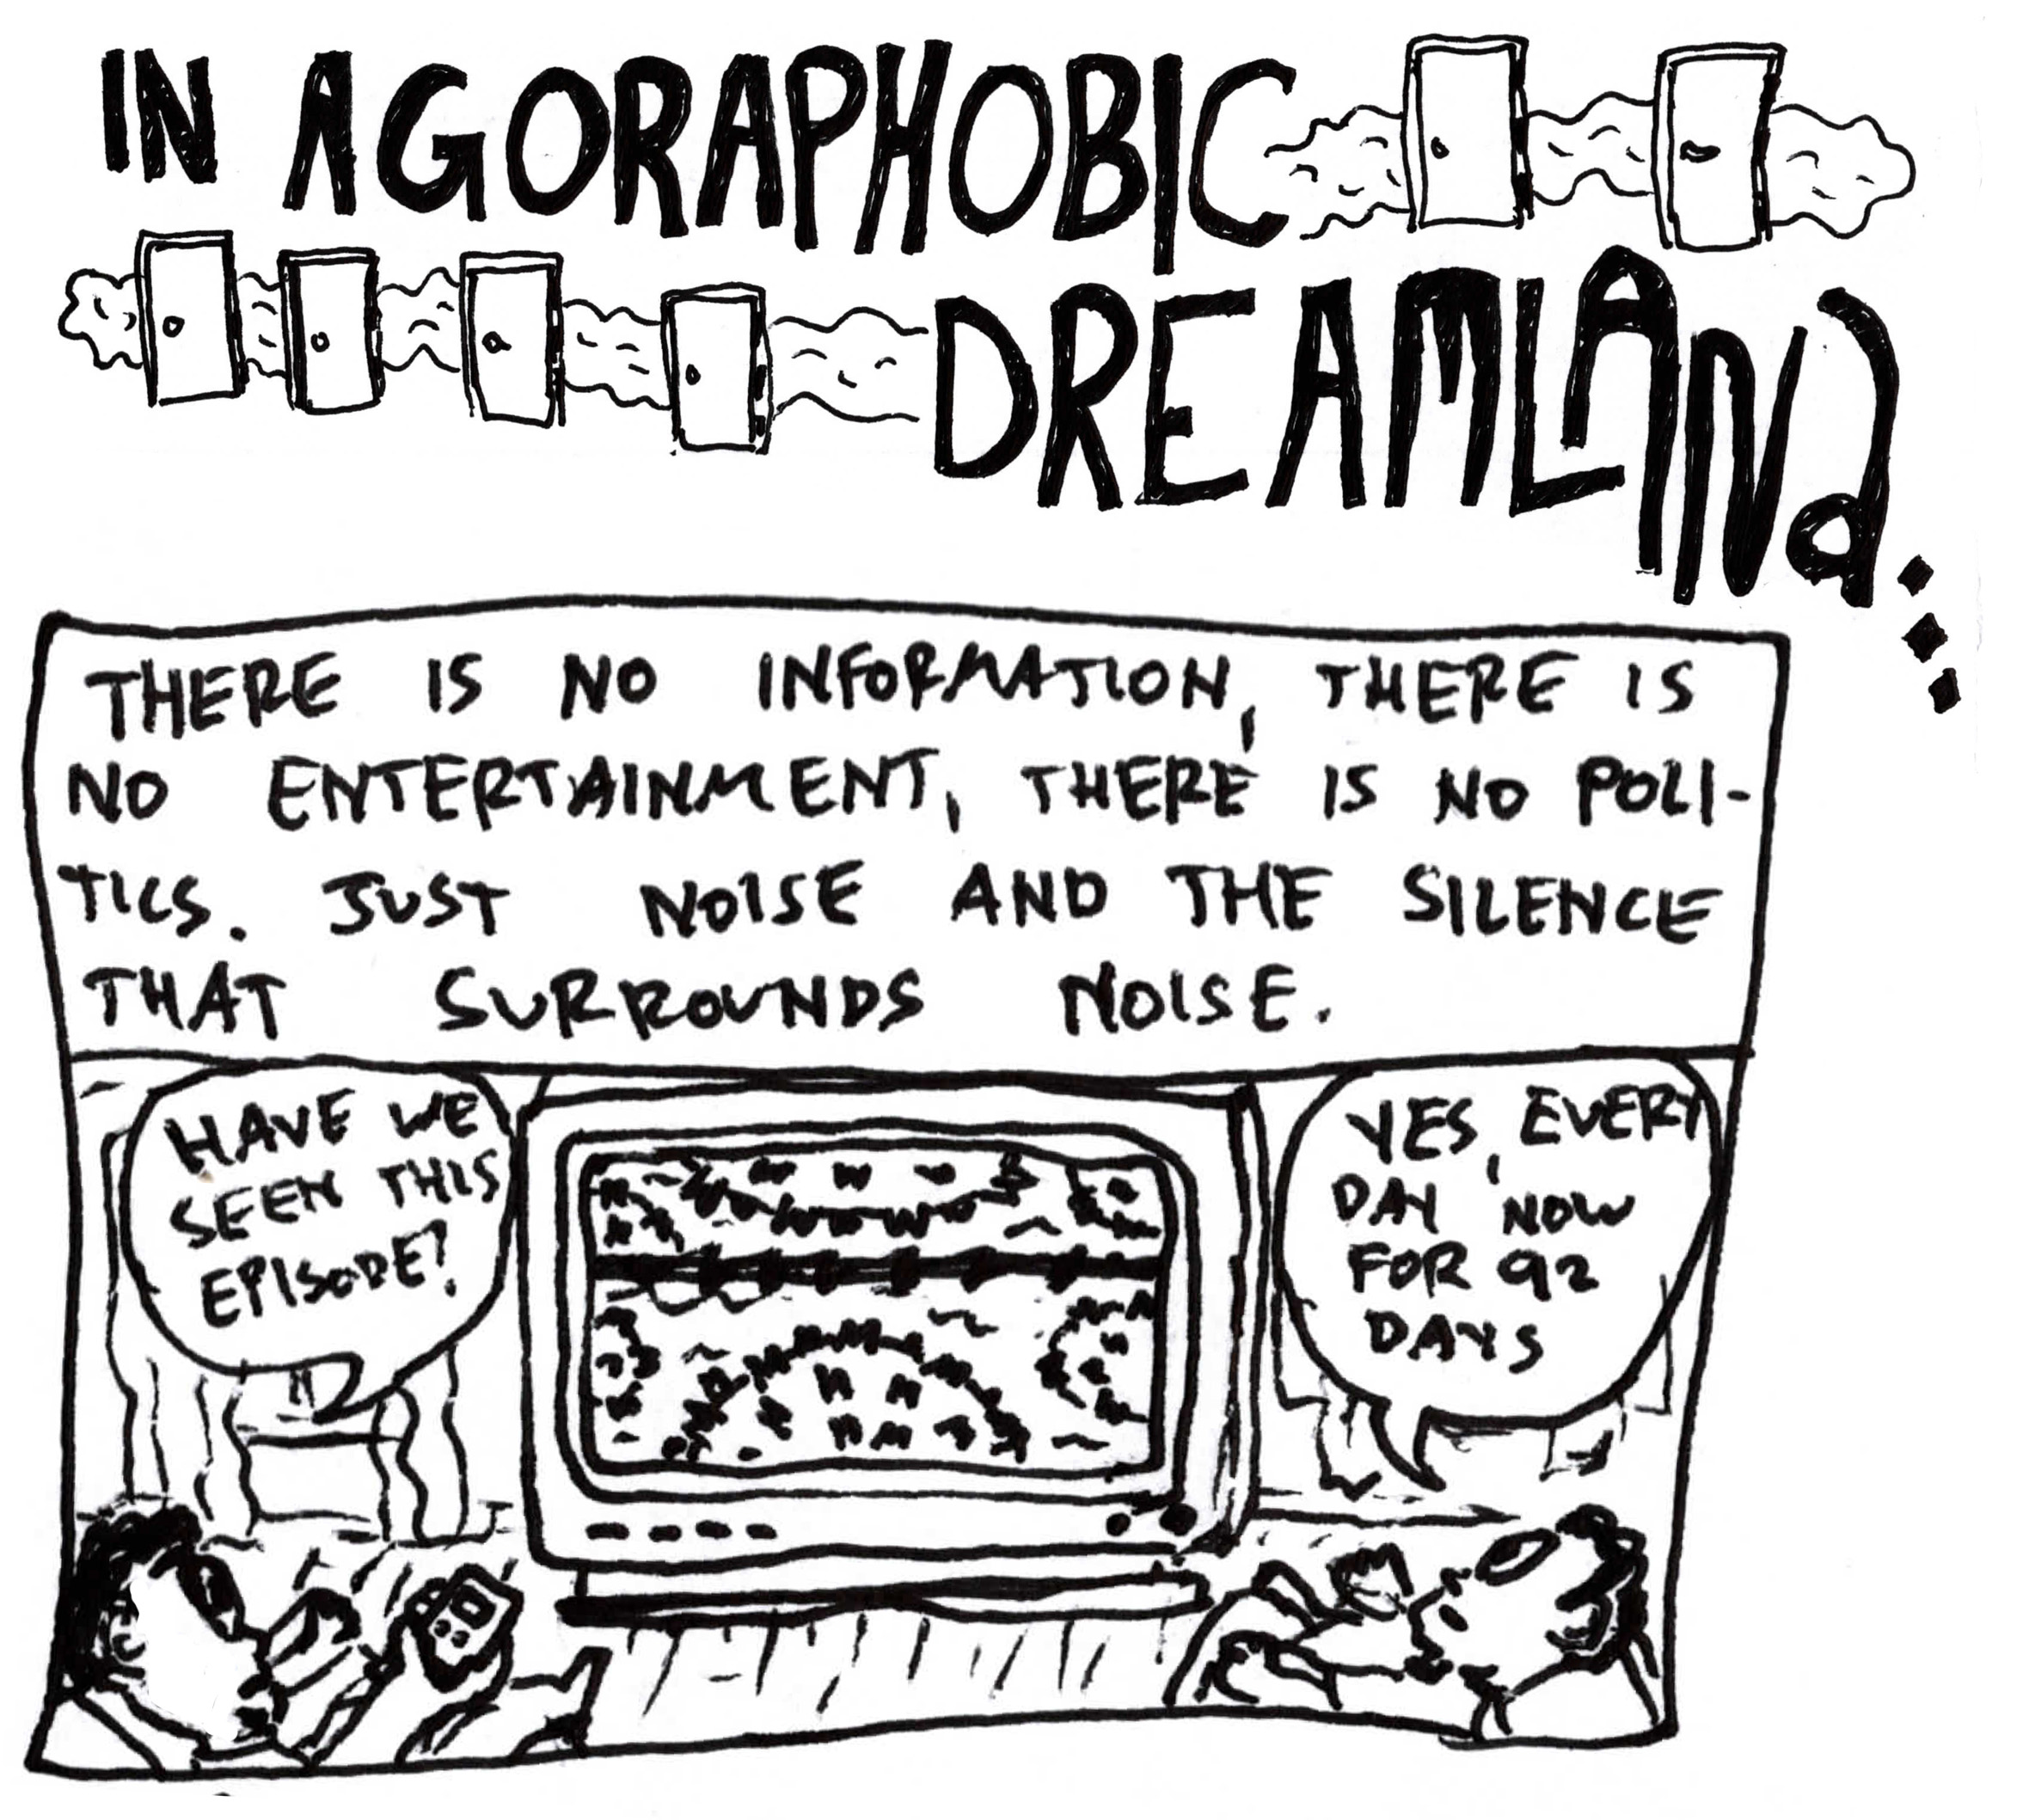 IN AGORAPHOBIC
DREAMLANd...
THERE IS NO INFORMATION, THERE IS
NO ENTERTAINMENT, THERE IS NO POLI-
TICS. JUST NOISE AND THE SILENCE
THAT SURROUNDS NOISE.
HAVE WE
SEEN THIS
EPISODE?
YES, EVERY
DAY NOW
FOR 92
DAYS